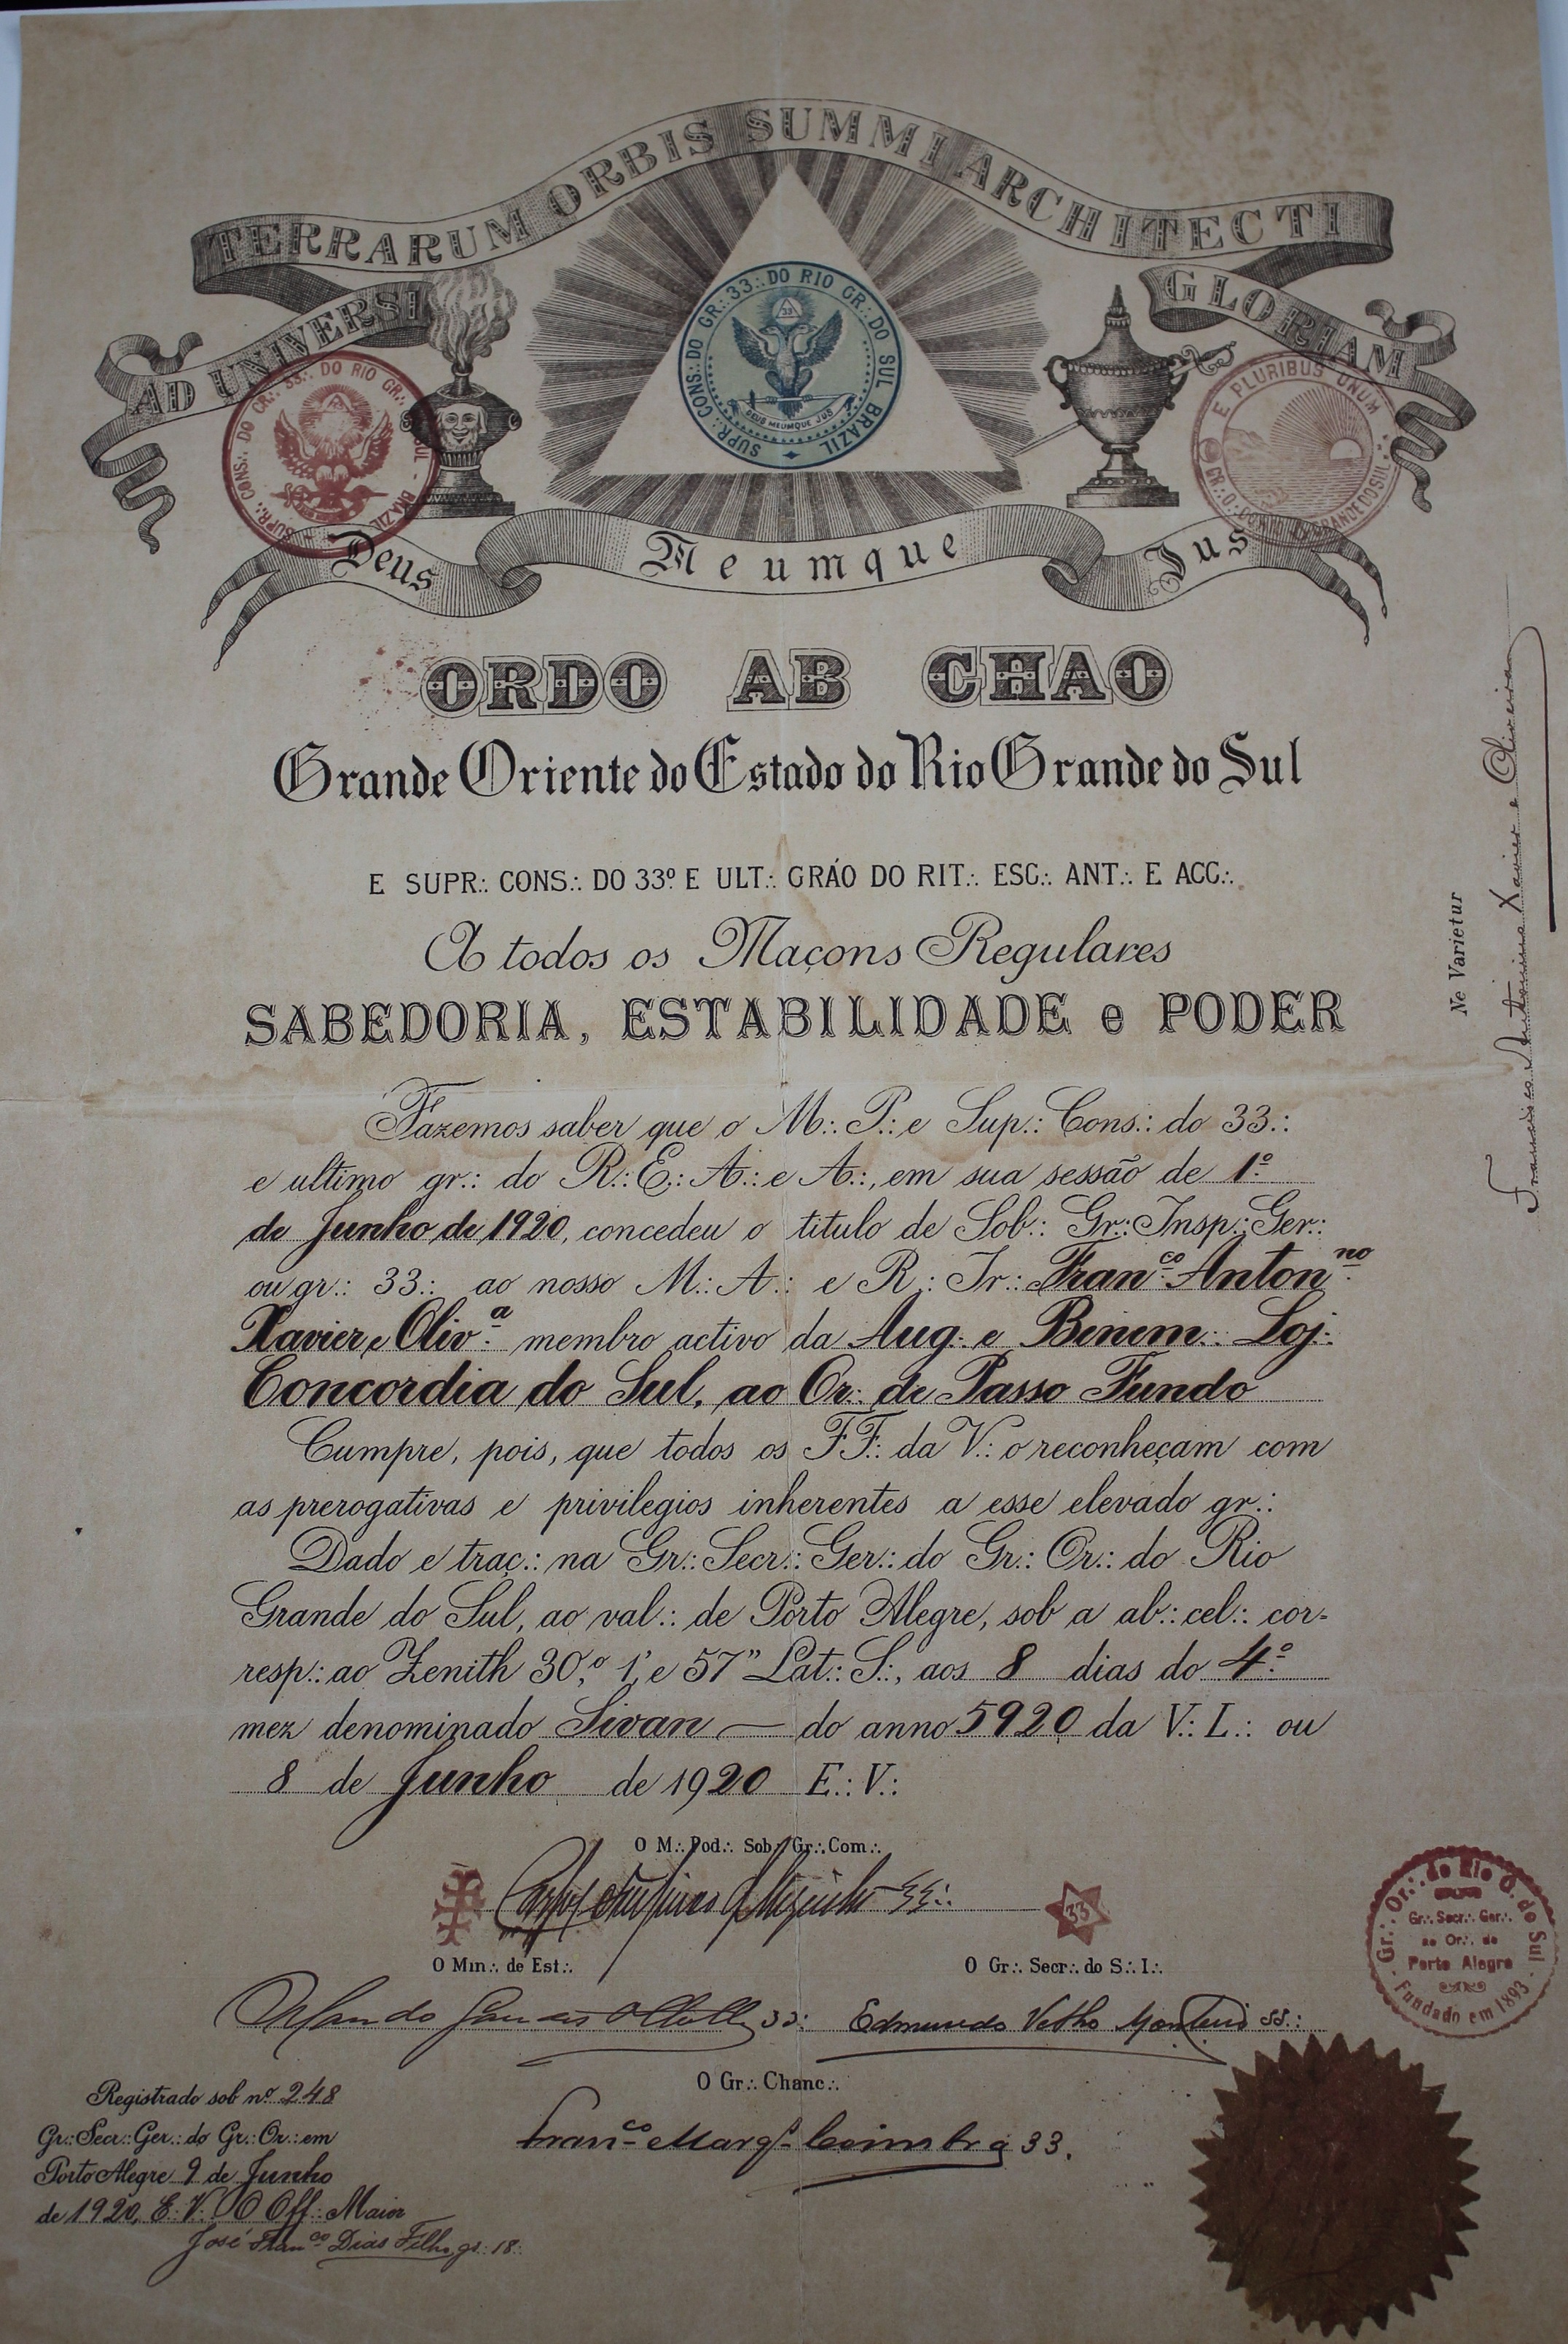 AD UNIVERSI TERRARUM ORBIS SUMMI ARCHITECTI GLORIAM
SUPR∴ CONS∴ DO GR∴ 33∴ DO RIO GR∴ DO SUL BRAZIL
33
DEUS MEUMQUE JUS
SUPR∴ CONS∴ DO GR∴ 33∴ DO RIO GR∴ DO SUL - BRAZIL
E PLURIBUS UNUM
GR∴ O∴ DO RIO GRANDE DO SUL
Deus Meumque Jus
ORDO AB CHAO
Grande Oriente do Estado do Rio Grande do Sul
E SUPR∴ CONS∴ DO 33º E ULT∴ GRÁO DO RIT∴ ESC∴ ANT∴ E ACC∴
A todos os Maçons Regulares
SABEDORIA, ESTABILIDADE e PODER
Fazemos saber que o M∴ P∴ e Sup∴ Cons∴ do 33∴
e ultimo gr∴ do R∴ E∴ A∴ e A∴, em sua sessão de 1º
de Junho de 1920, concedeu o titulo de Sob∴ Gr∴ Insp∴ Ger∴
ou gr∴ 33∴ ao nosso M∴ A∴ e R∴ Ir∴ Franco. Antonno.
Xavier e Oliva. membro activo da Aug∴ e Benem∴ Loj∴
Concordia do Sul, ao Or∴ de Passo Fundo
Cumpre, pois, que todos os FF∴ da V∴ o reconheçam com
as prerogativas e privilegios inherentes a esse elevado gr∴
Dado e traç∴ na Gr∴ Secr∴ Ger∴ do Gr∴ Or∴ do Rio
Grande do Sul, ao val∴ de Porto Alegre, sob a ab∴ cel∴ cor-
resp∴ ao Zenith 30,º 1,' e 57" Lat∴ S∴, aos 8 dias do 4º
mez denominado Sivan — do anno 5920 da V∴ L∴ ou
8 de Junho de 1920 E∴ V∴
O M∴ Pod∴ Sob∴ Gr∴ Com∴
33∴
33
O Min∴ de Est∴
O Gr∴ Secr∴ do S∴ I∴
Orlando 33∴
Edmundo Velho Monteiro 33∴
O Gr∴ Chanc∴
Franco. Marqs. Coimbra 33.
Registrado sob nº 248
Gr∴ Secr∴ Ger∴ do Gr∴ Or∴ em
Porto Alegre 9 de Junho
de 1920, E∴ V∴ O Off∴ Maior
José Franco. Dias Filho, gr∴ 18∴
Gr∴ Or∴ do Rio G. do Sul
Gr∴ Secr∴ Ger∴
ao Or∴ de
Porto Alegre
Fundado em 1893
Ne Varietur
Francisco Antonino Xavier e Oliveira